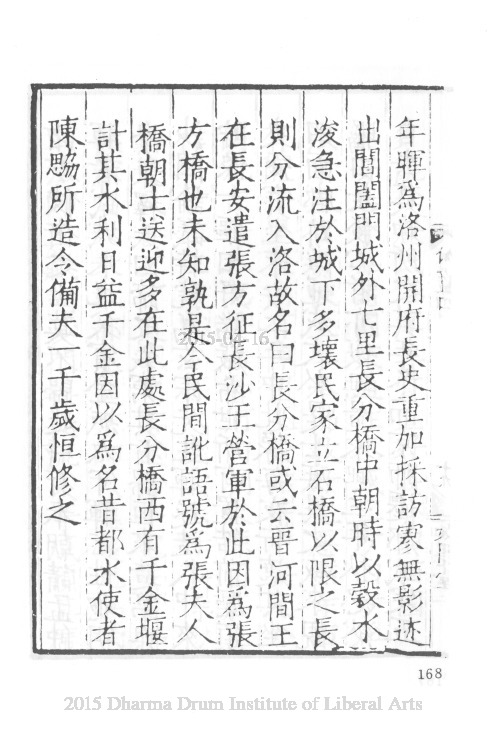 年暉爲洛州開府長史重加採訪寥無影迹
出閶闔門城外七里長分橋中朝時以穀水
浚急注於城下多壞民家立石橋以限之長
則分流入洛故名曰長分橋或云晉河間王
在長安遣張方征長沙王營軍於此因爲張
方橋也未知孰是今民間訛語號爲張夫人
橋朝士送迎多在此處長分橋西有千金堰
計其水利日益千金因以爲名昔都水使者
陳勰所造令備夫一千歲恒修之
2015-04-16
168
2015 Dharma Drum Institute of Liberal Arts